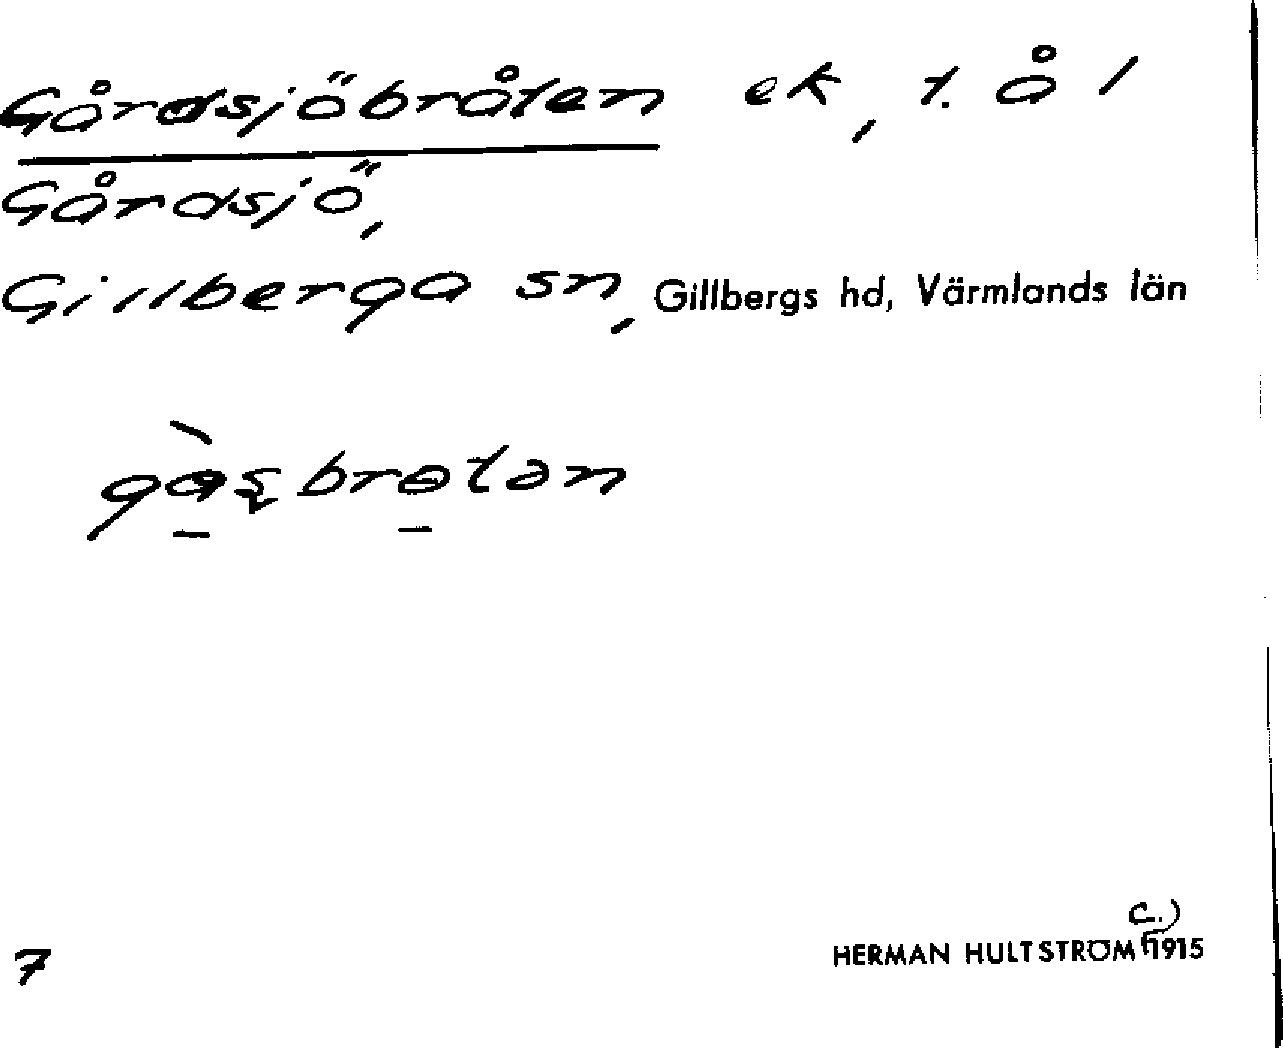 Gårdsjöbråten ek, t. å /
Gårdsjö,
Gillberga sn, Gillbergs hd, Värmlands län
7
C.)
HERMAN HULTSTRÖM 1915